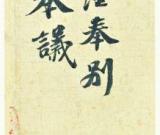 奉别
本議